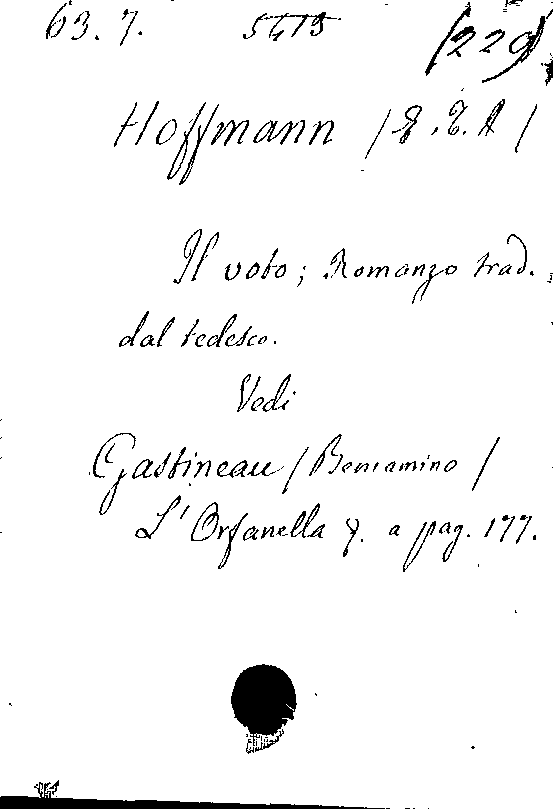 63. 7. 5415 (229)
Hoffmann (E. T. A)
Il voto; Romanzo trad.
dal tedesco.
Vedi
Gastineau (Beniamino)
L'Orfanella &. a pag. 177.